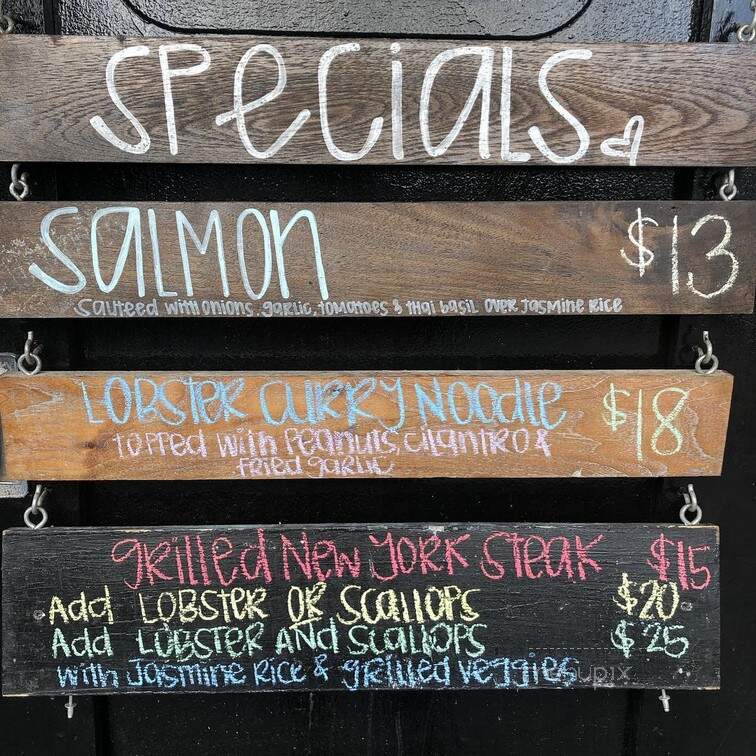 SPeCiaLS
SaLMON $13
Sauteed with onions, garlic, tomatoes & thai basil over Jasmine Rice
LOBSTeR CURRY NOOdLe $18
topped with Peanuts, cilantro &
fried garlic
grilled New York Steak $15
Add LOBSTeR OR Scallops $20
Add LOBSTeR ANd Scallops $25
with Jasmine Rice & grilled veggies